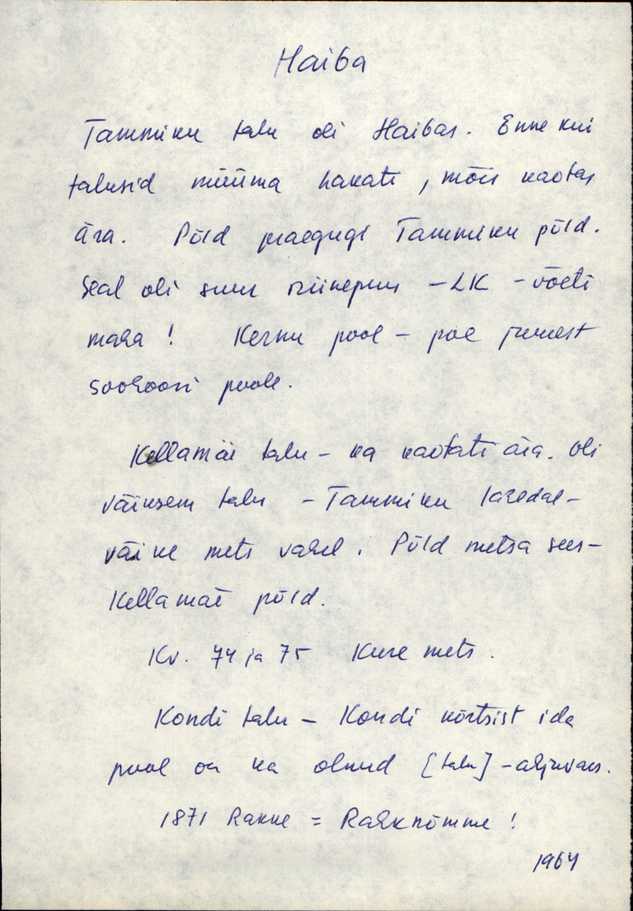 Haiba
Tammiku talu oli Haibas. Enne kui
talusid müüma hakati, mõis kaotas
ära. Põld praegugi Tammiku põld.
Seal oli suur – LK – võeti
maha! Kernu pool – poe juurest
poole.
Kellamäe talu – ka kaotati ära. Oli
väiksem talu – Tammiku lähedal –
väike mets vahel. Põld metsa sees –
Kellamäe põld.
Kv. 74 ja 75 Kure mets.
Kondi talu – Kondi kõrtsist ida
pool on ka olnud [talu] – ahjuvare.
1871 Rahknõmme!
1964